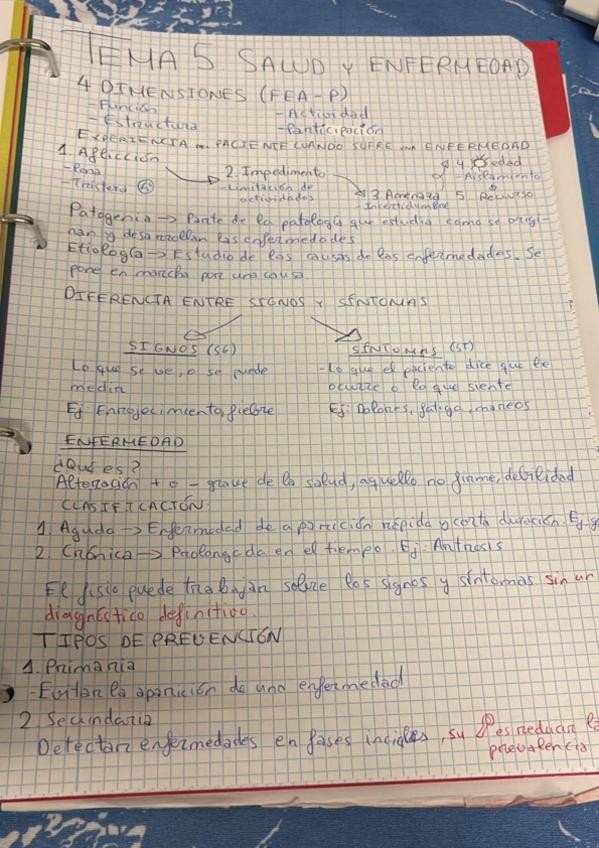 TEMA 5 SALUD Y ENFERMEDAD
4 DIMENSIONES (FEA-P)
- Función - Actividad
- Estructura - Participación
EXPERIENCIA del PACIENTE CUANDO SUFRE una ENFERMEDAD
1. Aflicción 2. Impedimento 4. Soledad
- Pena - Limitación de - Aislamiento
- Tristeza actividades 3. Amenaza 5. Recurso
Incertidumbre
Patogenia → Parte de la patología que estudia como se origi-
nan y desarrollan las enfermedades
Etiología → Estudio de las causas de las enfermedades. Se
pone en marcha por una causa
DIFERENCIA ENTRE SIGNOS Y SÍNTOMAS
SIGNOS (SG) SÍNTOMAS (ST)
Lo que se ve, o se puede - Lo que el paciente dice que le
medir ocurre o lo que siente
Ej: Enrojecimiento, fiebre Ej: Dolores, fatiga, mareos
ENFERMEDAD
¿Qué es?
Alteración + o - grave de la salud, aquello no firme, debilidad
CLASIFICACIÓN
1. Aguda → Enfermedad de aparición rápida y corta duración. Ej:
2. Crónica → Prolongada en el tiempo. Ej: Artrosis
El fisio puede trabajar sobre los signos y síntomas sin un
diagnóstico definitivo.
TIPOS DE PREVENCIÓN
1. Primaria
- Evitar la aparición de una enfermedad
2. Secundaria
Detectar enfermedades en fases inciales, su es reducir la
prevalencia